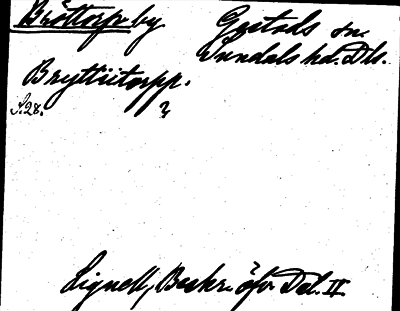 Bröttorp by Gestads sn.
Sundals hd. Dls.
Bryttietorpp.
S. 28. ?
Lignell, Beskr. öfv. Dal. II